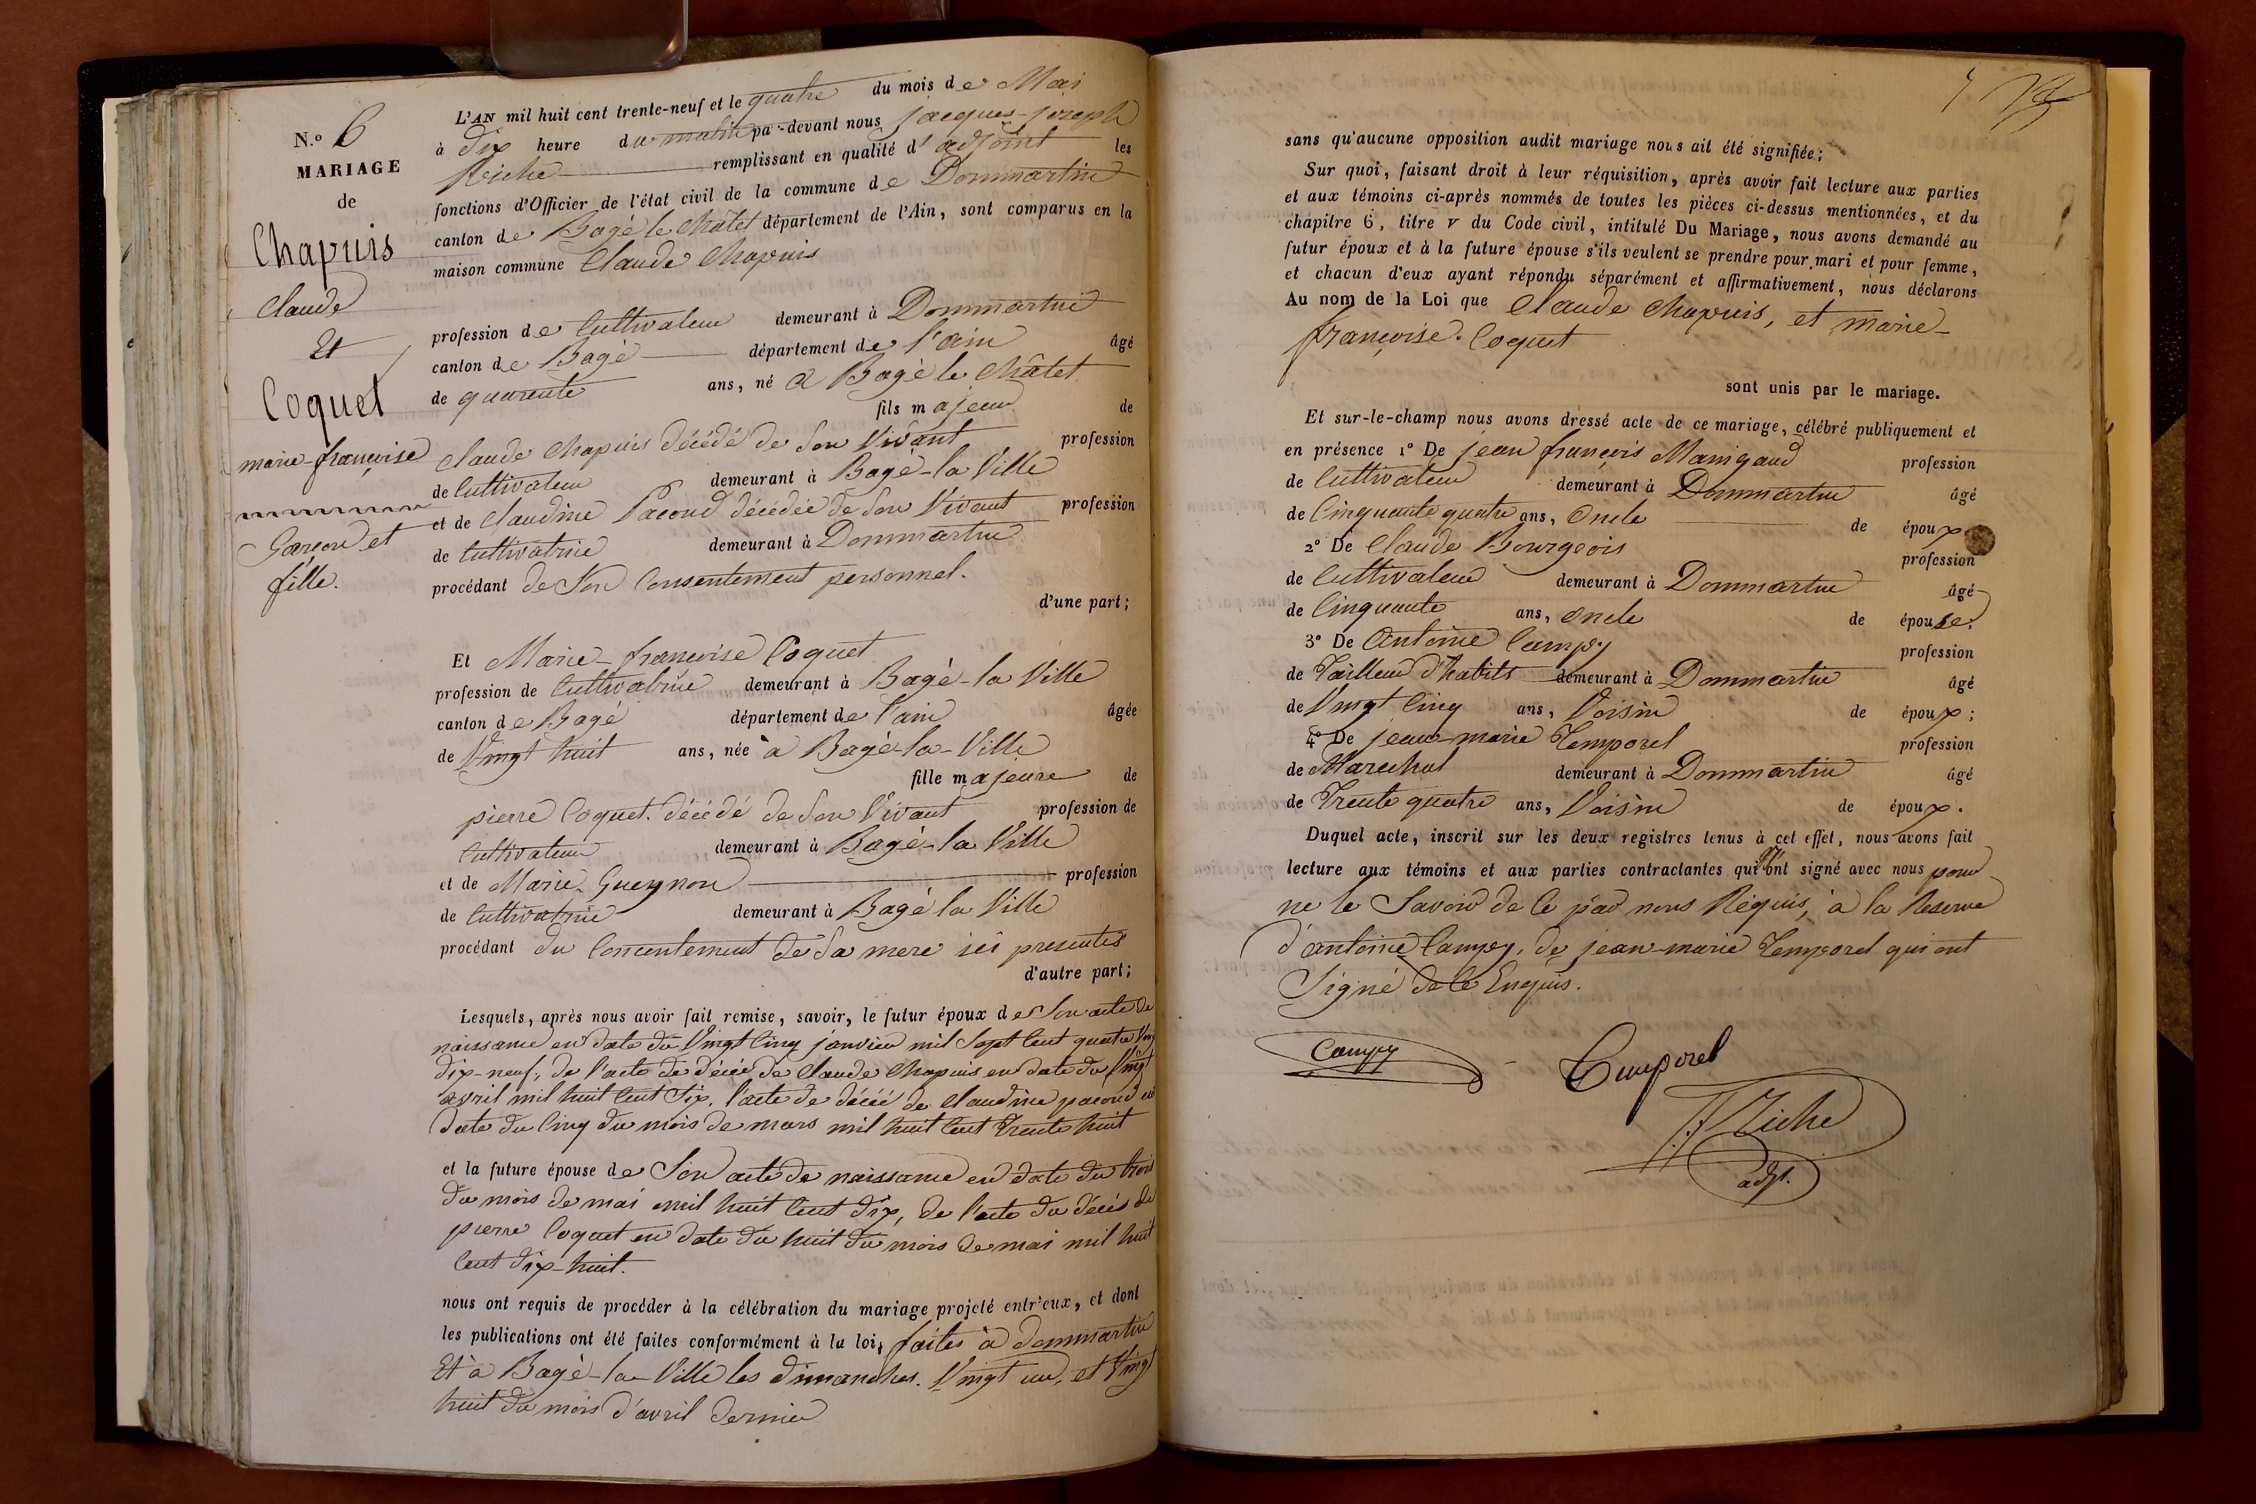 N.º 6
MARIAGE
de
Chapuis
Claude
Et
Coquet
marie-françoise
Garcon et
fille.
L'AN mil huit cent trente-neuf et le quatre du mois de Mai
à dix heure du matin pa-devant nous jacques-joseph
Riche remplissant en qualité d'adjoint les
fonctions d'Officier de l'état civil de la commune de Dommartin
canton de Bagé le Châtel département de l'Ain, sont comparus en la
maison commune Claude Chapuis
profession de Cultivateur demeurant à Dommartin
canton de Bagé département de l'ain âgé
de quarente ans, né a Bagé le Châtel
fils majeur de
claude Chapuis décédé de Son Vivant profession
de Cultivateur demeurant à Bagé-la Ville
et de claudine Pacoud décédée de Son Vivant profession
de Cultivatrice demeurant à Dommartin
procédant de Son Consentement personnel.
d'une part;
Et Marie-francoise Coquet
profession de Cultivatrice demeurant à Bagé-la Ville
canton de Bagé département de l'ain âgée
de Vingt huit ans, née à Bagé-la-Ville
fille majeure de
pierre Coquet. décédé de Son Vivant profession de
Cultivateur demeurant à Bagé-la Ville
et de Marie Gueynon profession
de Cultivatrice demeurant à Bagé la Ville
procédant du Concentement de Sa mere ici presentes
d'autre part;
Lesquels, après nous avoir fait remise, savoir, le futur époux de Son acte de
naissance en date du Vingt Cinq janvier mil Sept Cent quatre Vin
dix-neuf, de l'acte de décéé de Claude Chapuis en date du Vingt
avril mil huit Cent Six, l'acte de décéé de Claudine pacoud en
date du Cinq du mois de mars mil huit Cent Trente huit
et la future épouse de Son acte de naissance en date du trois
du mois de mai mil huit Cent dix, de l'acte du décés de
pierre Coquet en date du huit du mois de mai mil huit
Cent dix-huit.
nous ont requis de procéder à la célébration du mariage projeté entr'eux, et dont
les publications ont été faites conformément à la loi, faites à dommartin
Et à Bagé-la-Ville les dimanches. Vingt un, et Vingt
huit du mois d'avril dernier
sans qu'aucune opposition audit mariage nous ait été signifiée;
Sur quoi, faisant droit à leur réquisition, après avoir fait lecture aux parties
et aux témoins ci-après nommés de toutes les pièces ci-dessus mentionnées, et du
chapitre 6, titre V du Code civil, intitulé Du Mariage, nous avons demandé au
futur époux et à la future épouse s'ils veulent se prendre pour mari et pour femme,
et chacun d'eux ayant répondu séparément et affirmativement, nous déclarons
Au nom de la Loi que Claude Chapuis, et marie-
françoise. Coquet
sont unis par le mariage.
Et sur-le-champ nous avons dressé acte de ce mariage, célébré publiquement et
en présence 1º De jean françois Manigaud profession
de Cultivateur demeurant à Dommartin âgé
de Cinquante quatre ans, Oncle de époux
2º De Claude Bourgeois profession
de Cultivateur demeurant à Dommartin âgé
de Cinquante ans, oncle de épouse;
3º De Antoine Campy profession
de Tailleur d'habits demeurant à Dommartin âgé
de Vingt Cinq ans, Voisin de époux;
4º De jean-marie Temporel profession
de Marechal demeurant à Dommartin âgé
de Trente quatre ans, Voisin de époux.
Duquel acte, inscrit sur les deux registres tenus à cet effet, nous avons fait
lecture aux témoins et aux parties contractantes qui n'ont signé avec nous pour
ne le Savoir de Ce par nous Réquis, à la Reserve
d'antoine Campy, de jean-marie Temporel qui ont
Signé de Ce Enquis.
Campy
Temporel
JJ Riche
adjt.